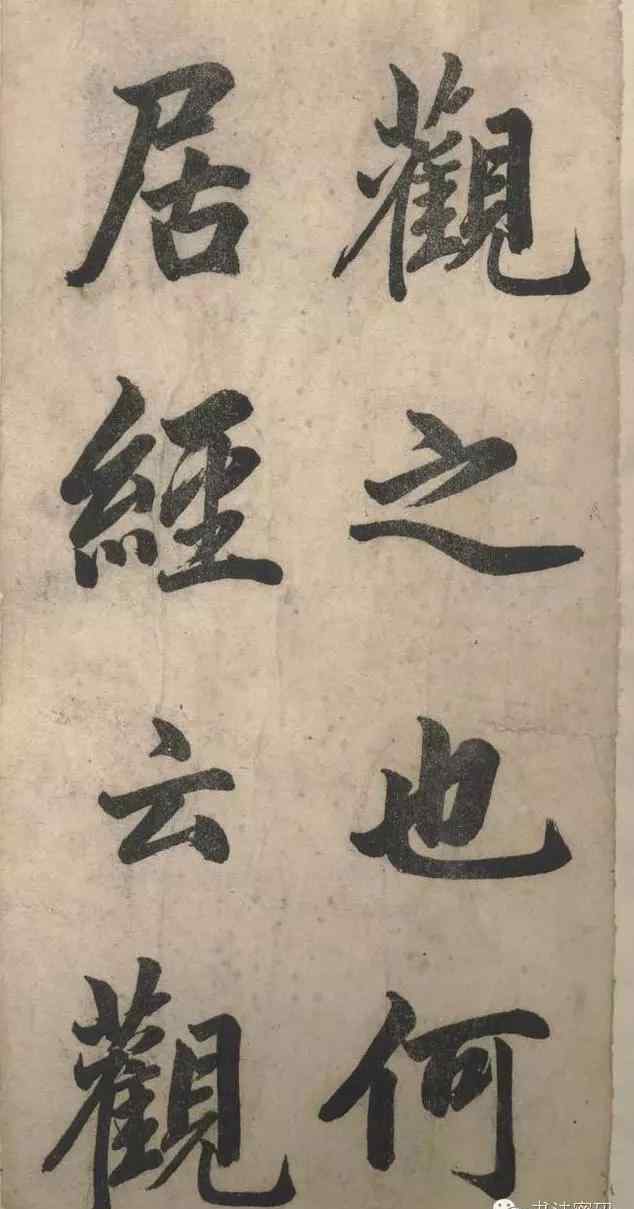 觀之也何
居經云觀
书法密码